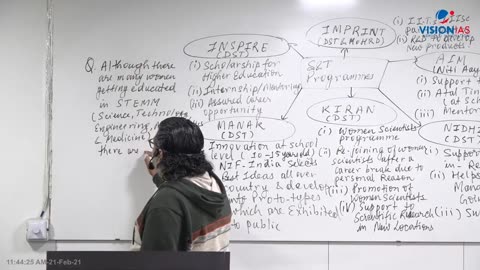 VISIONIAS
Q. Although there
are many women
getting educated
in STEMM
(Science, Technology
Engineering,
Medicine)
there are
INSPIRE
(DST)
(i) Scholarship for
Higher Education
(ii) Internship/Mentoring
(iii) Assured career
opportunity
MANAK
(DST)
Innovation at school
level (10-15 years old)
NIF-India selects
Best Ideas all over
country & develop
into Proto-types
which are Exhibited
to public
IMPRINT
(DST & MoHRD)
(i) I.I.T.s IISc
(ii) R&D to develop
new products
S&T
Programmes
KIRAN
(DST)
(i) Women Scientists
programme
(ii) Re-joining of women
scientists after a
career break due to
personal Reason
(iii) Promotion of
Women Scientists
(iv) Support to
Scientific Research
in New Locations
AIM
(Niti Aay
(i) Support
(ii) Atal Tin
(at Scho
(iii) Mentor
NIDHI
(DST
(i) Support
in
(ii) Helps
Mana
(iii) Su
11:44:25 AM-21-Feb-21